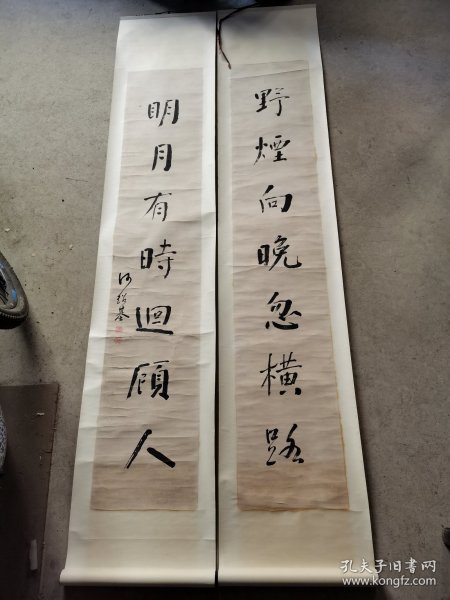 野煙向晚忽橫路
明月有時迴顧人
何紹基
孔夫子旧书网
www.kongfz.com